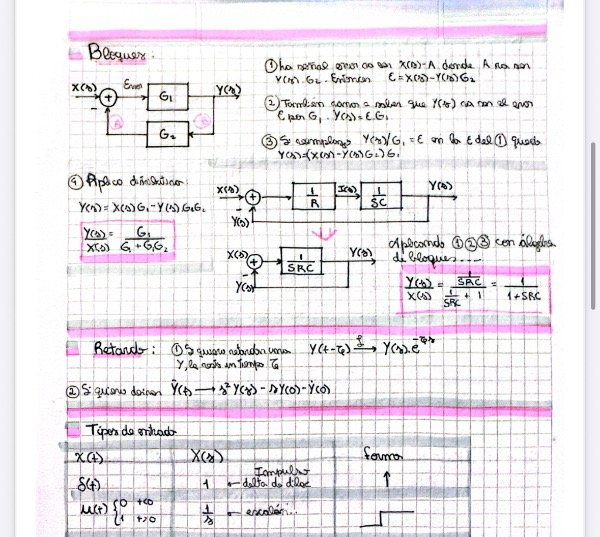 Bloques:
X(s) Error G₁ Y(s)
G₂
① La señal error va ser X(s)-A donde A va ser
Y(s).G₂. Entonces E=X(s)-Y(s)G₂
② Tambien vamos a saber que Y(s) va ser el error
E por G₁. Y(s)=E.G₁
③ Si reemplazo Y(s)/G₁=E en la E del ① queda
Y(s)=(X(s)-Y(s)G₂)G₁
④ Aplico distributiva:
Y(s)=X(s)G₁-Y(s)G₁G₂
Y(s)/X(s) = G₁/G+G₁G₂
X(s) 1/R I(s) 1/SC Y(s)
Y(s)
X(s) 1/SRC Y(s)
Y(s)
Aplicando ①②③ con álgebra
de bloques....
Y(s)/X(s) = 1/SRC / 1/SRC + 1 = 1/1+SRC
Retardo: ① Si quiero retardar una
Y, la resto un tiempo τ₀
Y(t-τ₀) → Y(s).e^-τ₀s
② Si quiero derivar Ÿ(t) → s²Y(s)-sY(0)-Ẏ(0)
Tipos de entrada
X(t) X(s) forma
δ(t) 1 ← Impulso
delta de dirac
μ(t) {0 t<0
1 t>0
1/s ← escalón...